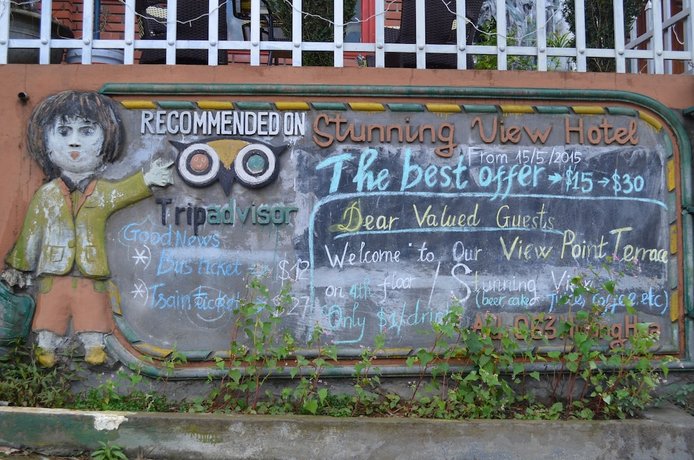 RECOMMENDED ON
Tripadvisor
Good News
* Bus ticket → $12
* Train ticket → $27
Stunning View Hotel
From 15/5/2015
The best offer → $15 → $30
Dear Valued Guests
Welcome to Our View Point Terrace
on 4th floor / Stunning View
(beer, coffee etc)
Only $1/drink